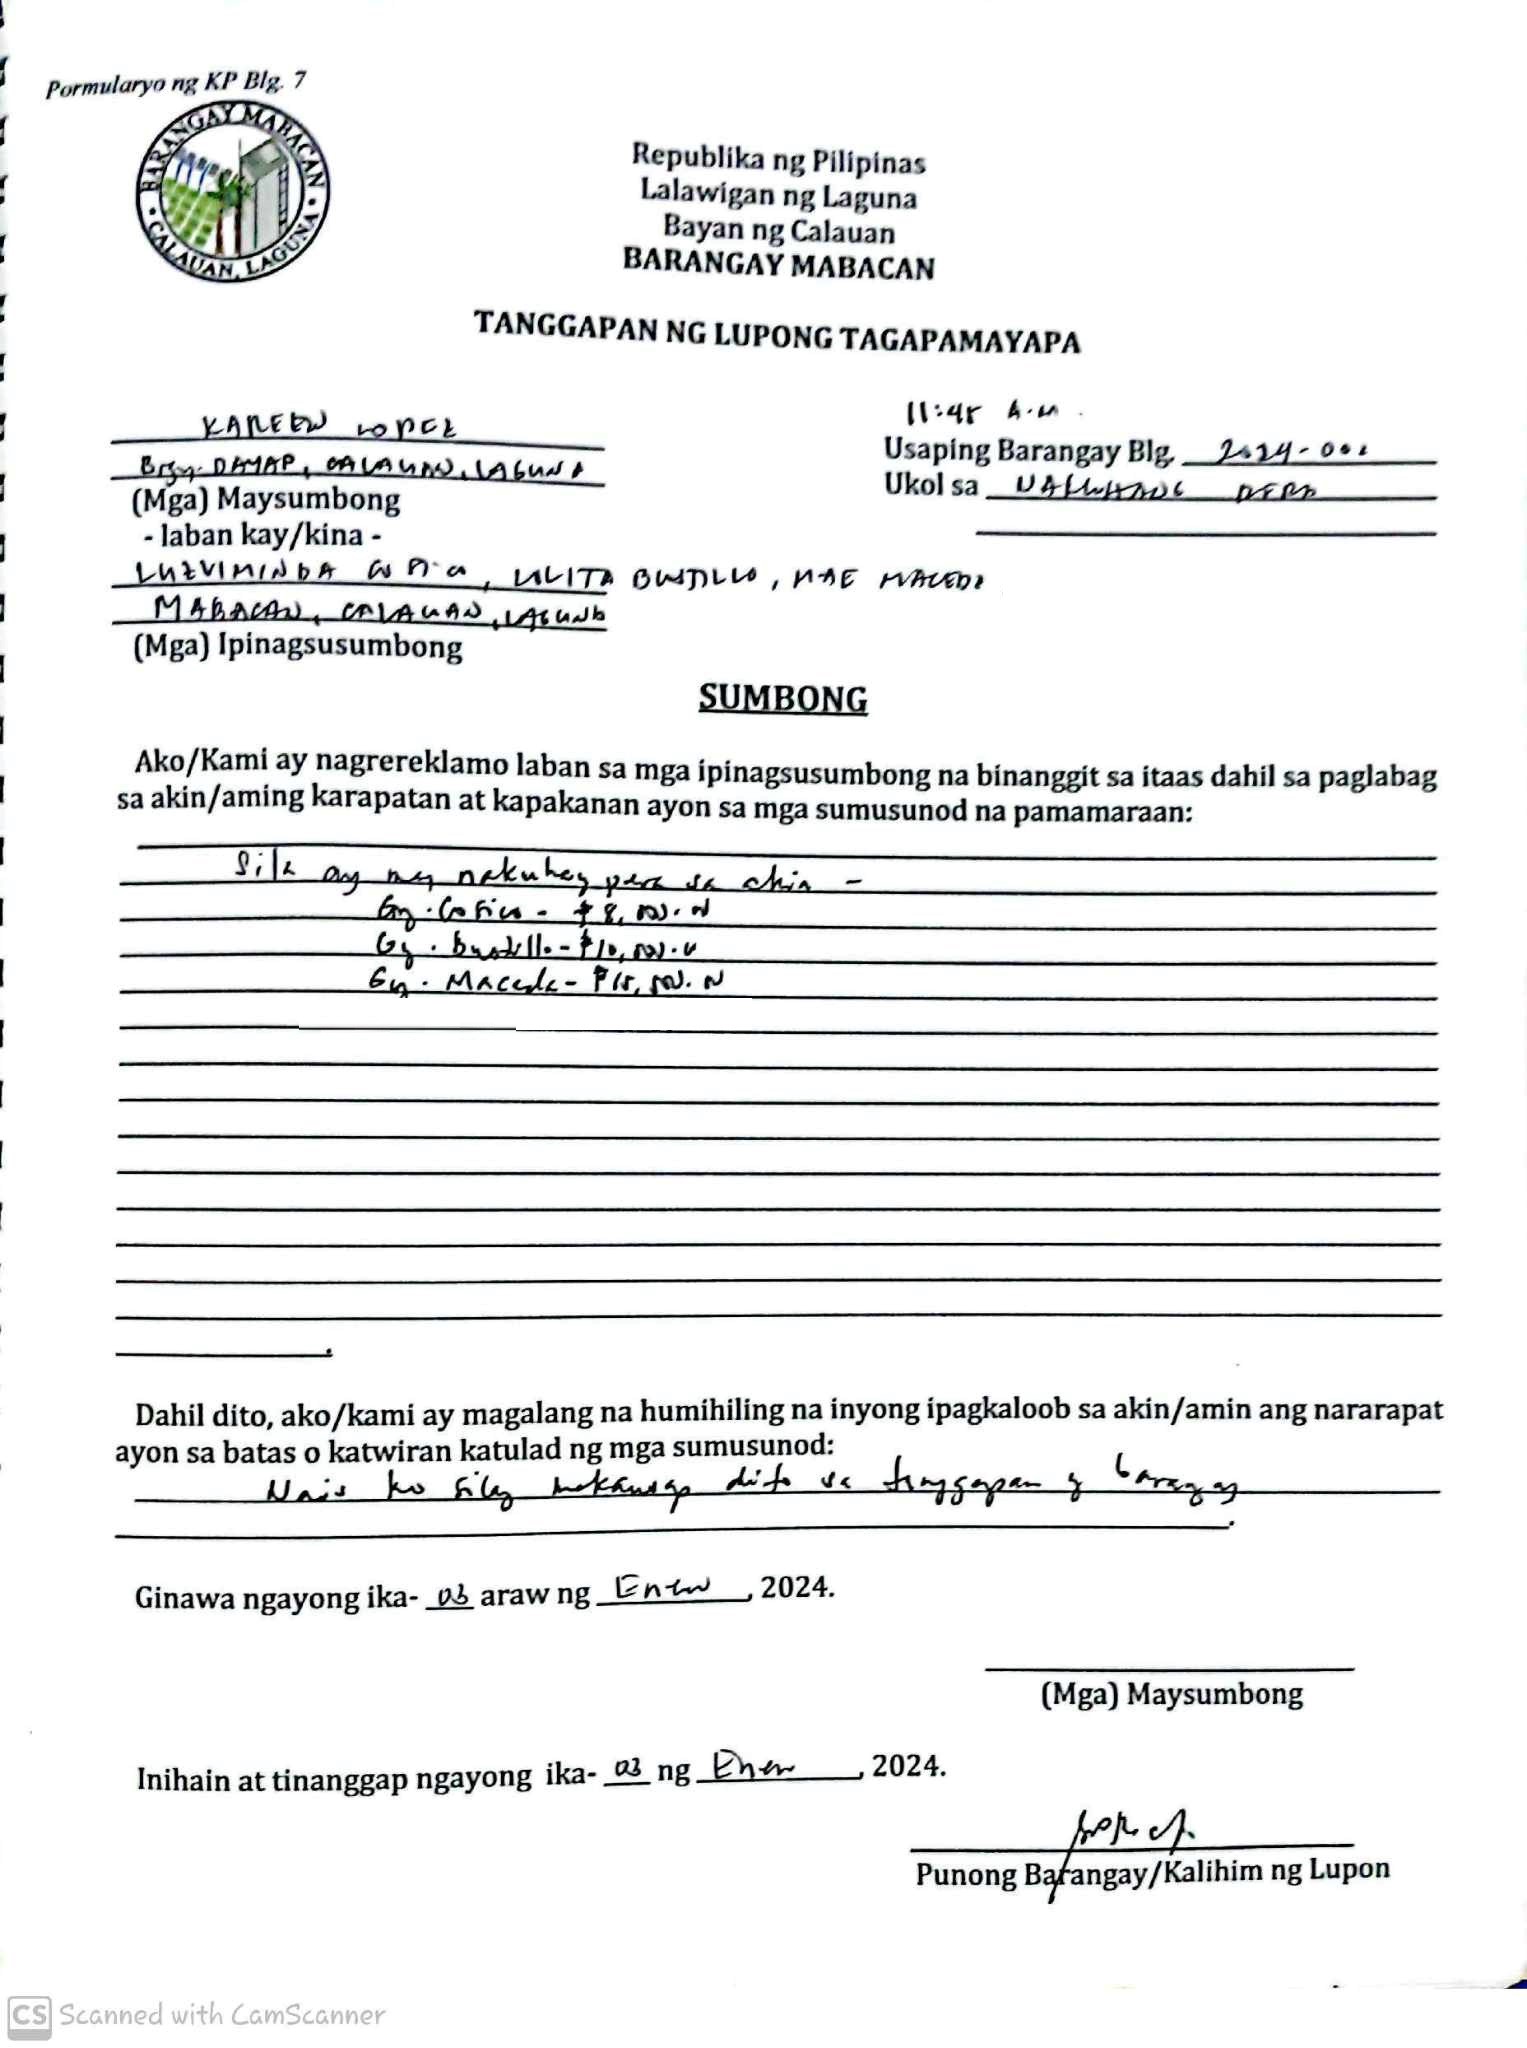 Pormularyo ng KP Blg. 7
BARANGAY MABACAN
CALAUAN, LAGUNA
Republika ng Pilipinas
Lalawigan ng Laguna
Bayan ng Calauan
BARANGAY MABACAN
TANGGAPAN NG LUPONG TAGAPAMAYAPA
KAREEN LOPEZ
Brgy. DAYAP, CALAUAN, LAGUNA
(Mga) Maysumbong
- laban kay/kina -
LUZVIMINDA, LOLITA BUSTILLO, MAE MACEDA
MABACAN, CALAUAN, LAGUNA
(Mga) Ipinagsusumbong
11:45 A.M.
Usaping Barangay Blg. 2024-
Ukol sa NAKUHANG PERA
SUMBONG
Ako/Kami ay nagrereklamo laban sa mga ipinagsusumbong na binanggit sa itaas dahil sa paglabag
sa akin/aming karapatan at kapakanan ayon sa mga sumusunod na pamamaraan:
Sila ay may nakuhang pera sa akin -
Gng. - ₱8,000.00
Gng. Bustillo - ₱10,000.00
Gng. Maceda - ₱15,000.00
Dahil dito, ako/kami ay magalang na humihiling na inyong ipagkaloob sa akin/amin ang nararapat
ayon sa batas o katwiran katulad ng mga sumusunod:
Nais ko silang makausap dito sa tanggapan ng barangay
Ginawa ngayong ika- 03 araw ng Enero, 2024.
(Mga) Maysumbong
Inihain at tinanggap ngayong ika- 03 ng Enero, 2024.
Punong Barangay/Kalihim ng Lupon
CS Scanned with CamScanner